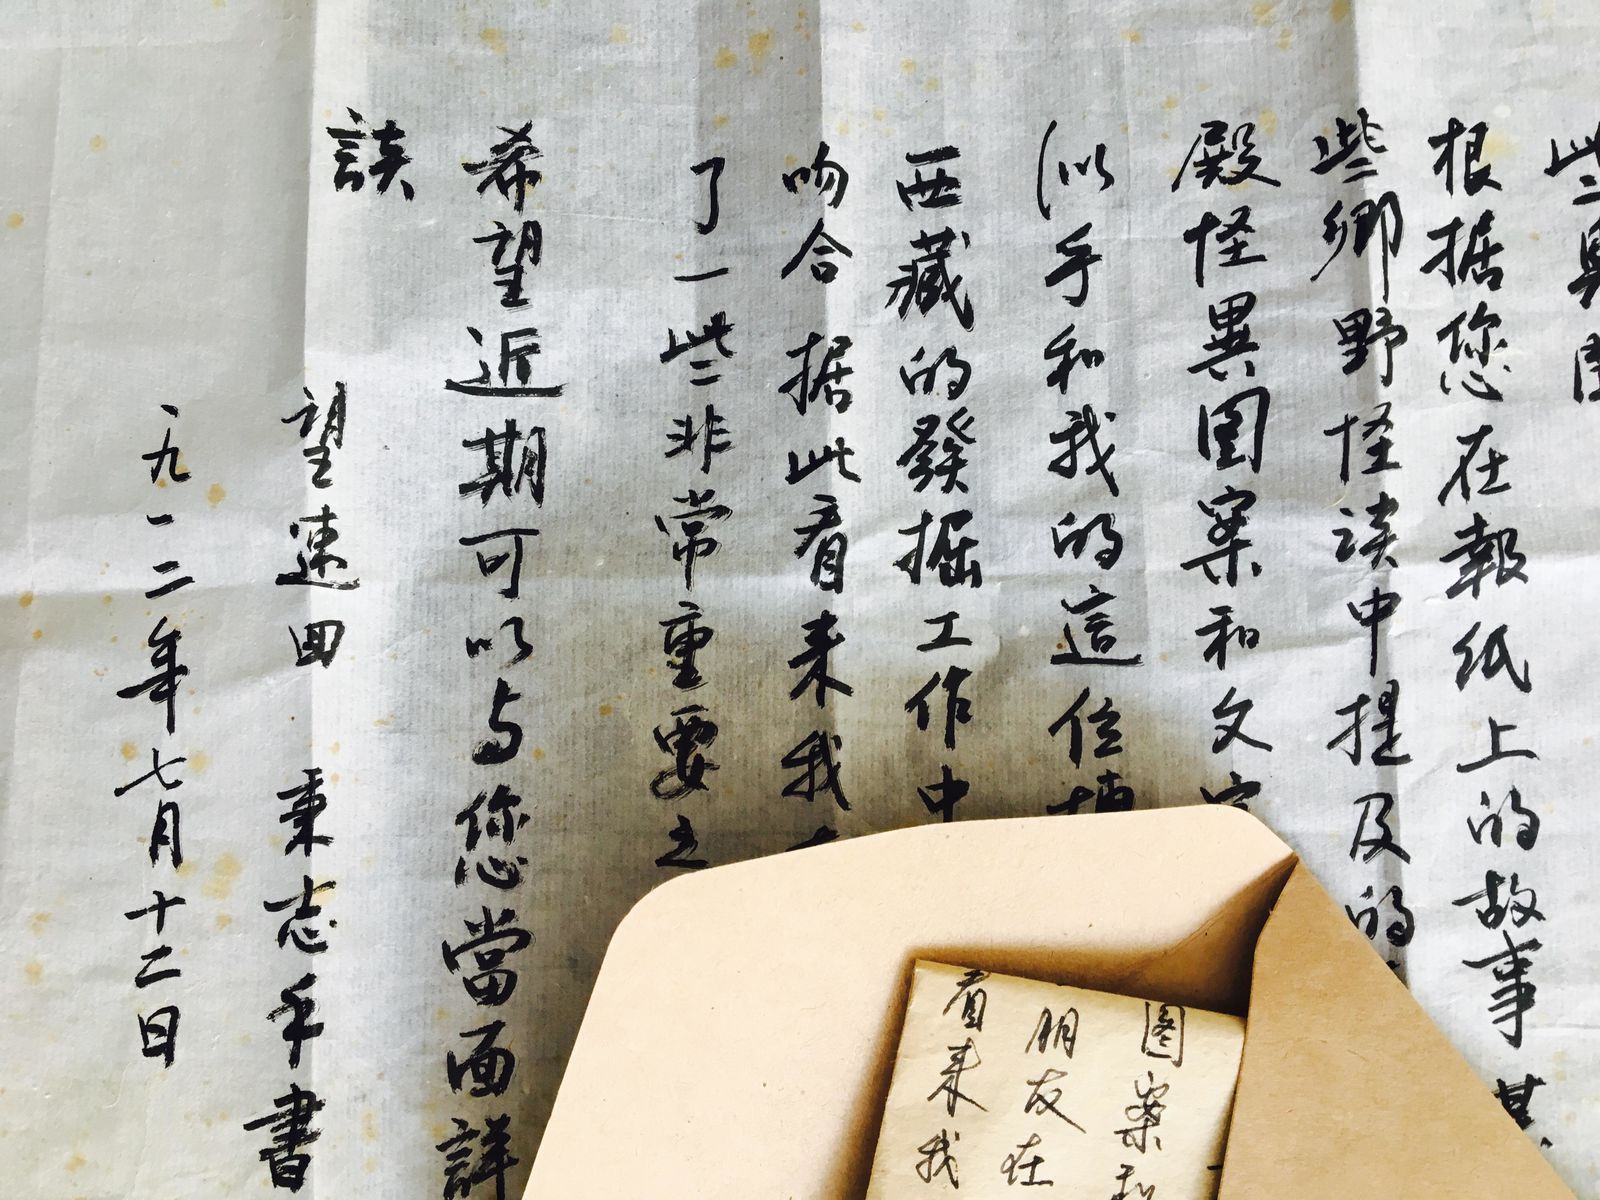 些
根据您在報紙上的故事其
些鄉野怪谈中提及的
殿怪異图案和文
似乎和我的這位
西藏的發掘工作中
吻合 据此看来我
了一些非常重要之
希望近期可以与您當面詳
談
望速回 秉志手書
一九一二年七月十二日
图案和
朋友在
看来我